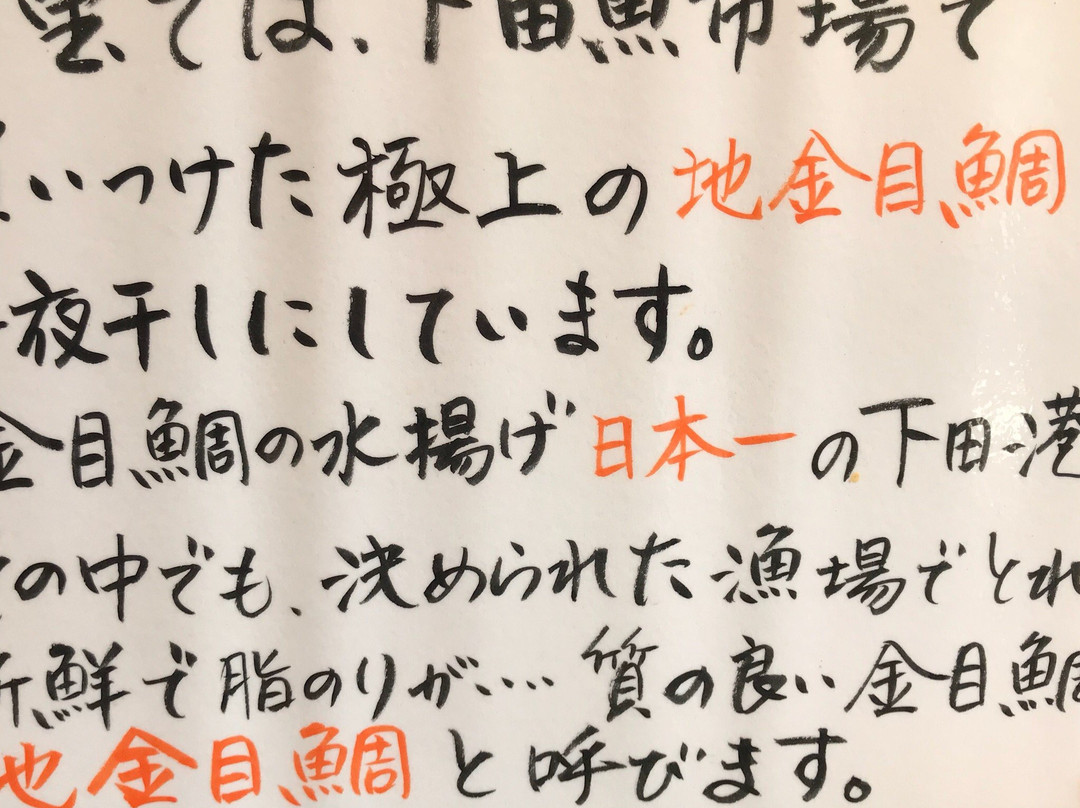 里では、下田魚市場で
いつけた極上の地金目鯛
夜干しにしています。
金目鯛の水揚げ日本一の下田港
の中でも、決められた漁場でとれ
新鮮で脂のりが.... 質の良い金目鯛
地金目鯛と呼びます。